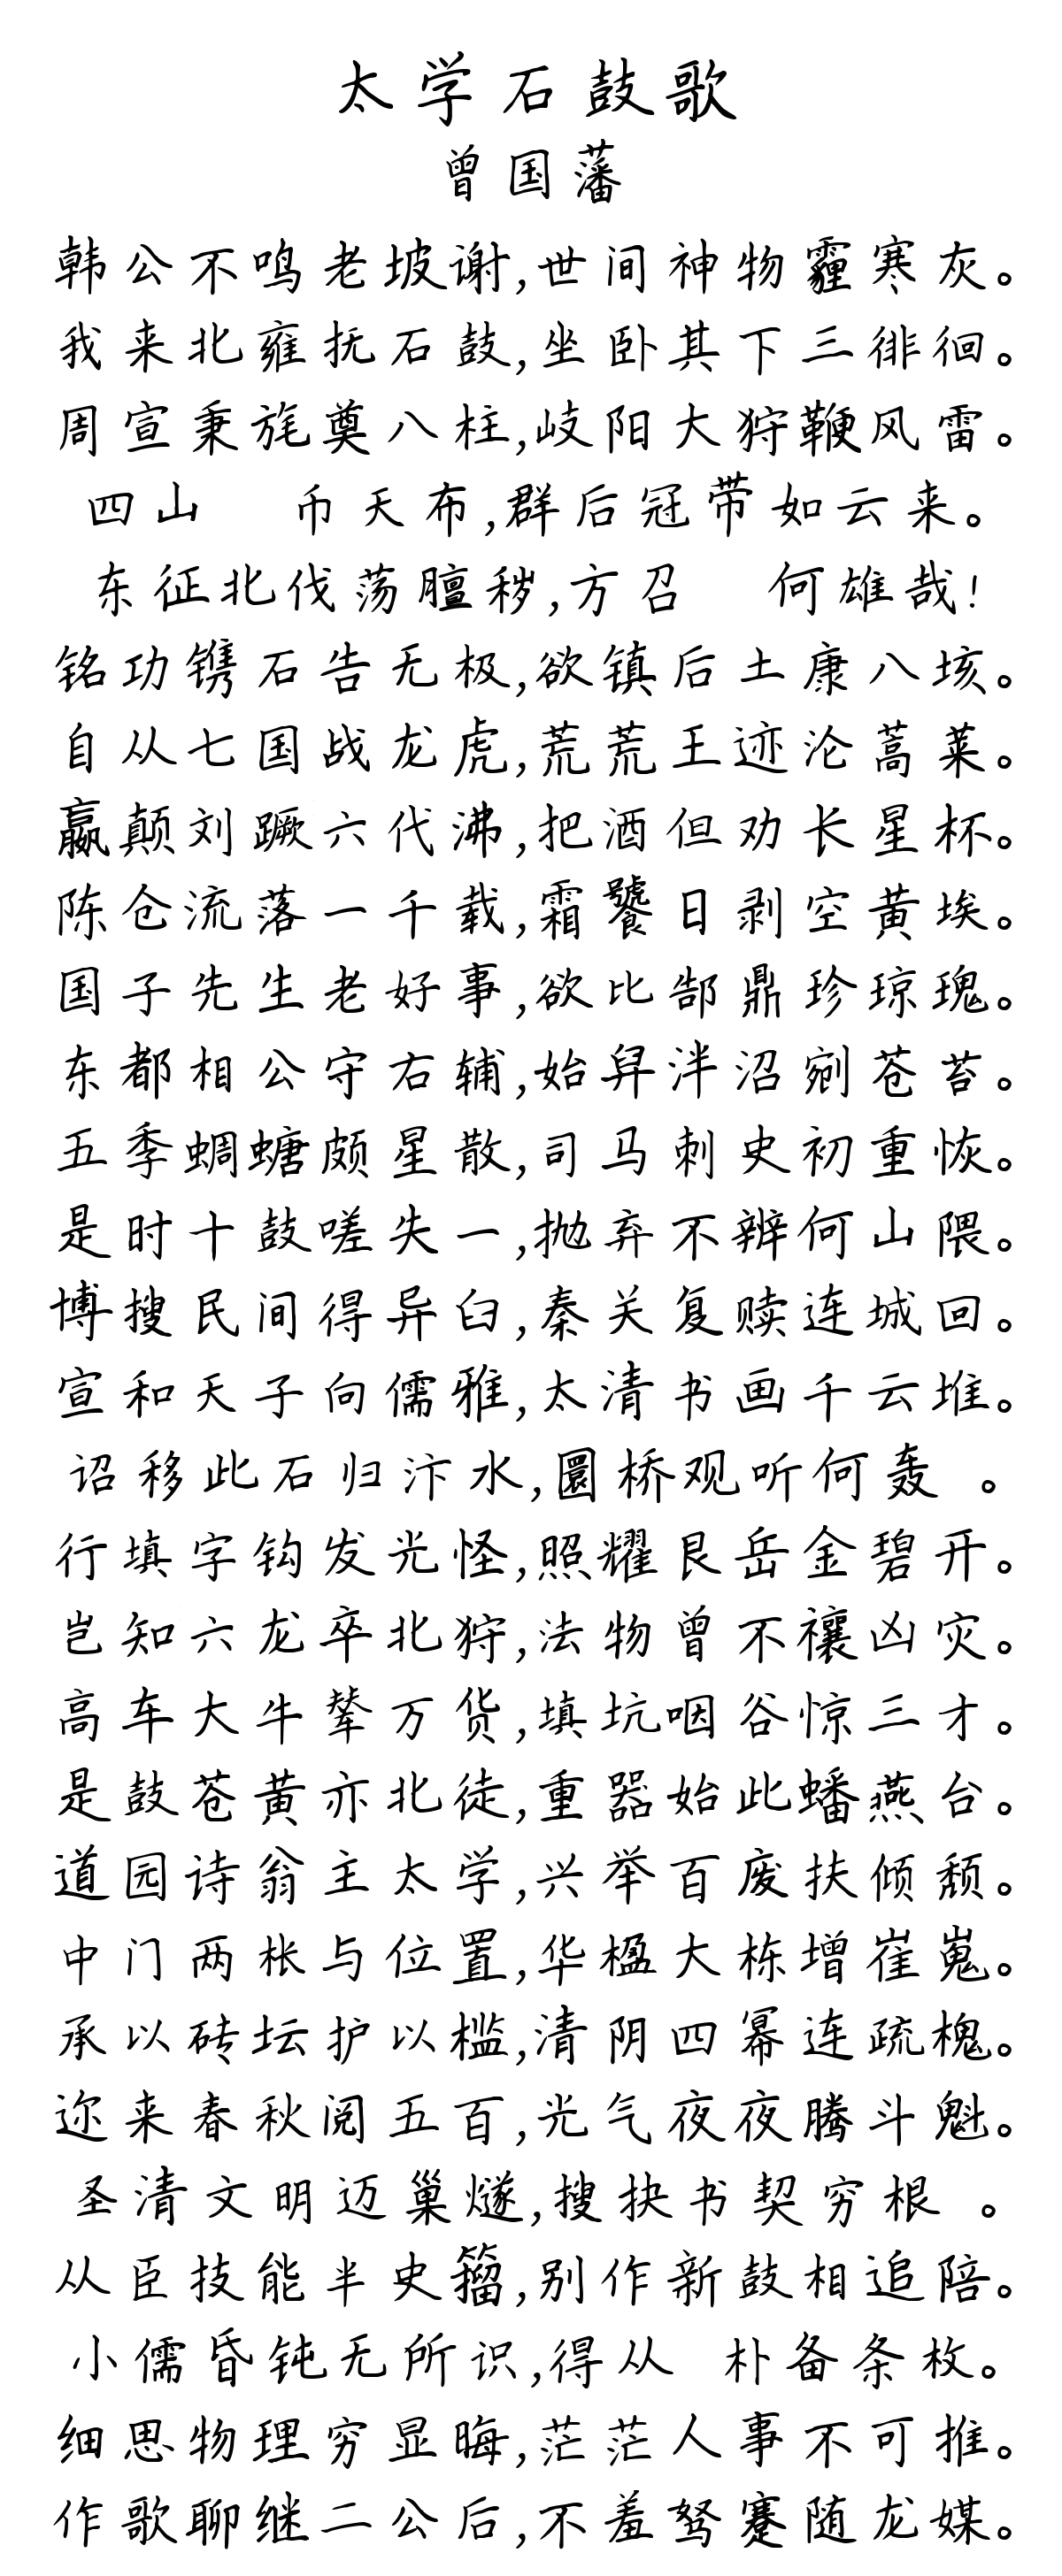 太学石鼓歌
曾国藩
韩公不鸣老坡谢,世间神物霾寒灰。
我来北雍抚石鼓,坐卧其下三徘徊。
周宣秉旄奠八柱,岐阳大狩鞭风雷。
四山 币天布,群后冠带如云来。
东征北伐荡膻秽,方召 何雄哉!
铭功镌石告无极,欲镇后土康八垓。
自从七国战龙虎,荒荒王迹沦蒿莱。
嬴颠刘蹶六代沸,把酒但劝长星杯。
陈仓流落一千载,霜饕日剥空黄埃。
国子先生老好事,欲比郜鼎珍琼瑰。
东都相公守右辅,始舁泮沼剜苍苔。
五季蜩螗颇星散,司马刺史初重恢。
是时十鼓嗟失一,抛弃不辨何山隈。
博搜民间得异臼,秦关复赎连城回。
宣和天子向儒雅,太清书画千云堆。
诏移此石归汴水,圜桥观听何轰 。
行填字钩发光怪,照耀艮岳金碧开。
岂知六龙卒北狩,法物曾不禳凶灾。
高车大牛辇万货,填坑咽谷惊三才。
是鼓苍黄亦北徒,重器始此蟠燕台。
道园诗翁主太学,兴举百废扶倾颓。
中门两枨与位置,华楹大栋增崔嵬。
承以砖坛护以槛,清阴四幂连疏槐。
迩来春秋阅五百,光气夜夜腾斗魁。
圣清文明迈巢燧,搜抉书契穷根 。
从臣技能半史籀,别作新鼓相追陪。
小儒昏钝无所识,得从 朴备条枚。
细思物理穷显晦,茫茫人事不可推。
作歌聊继二公后,不羞驽蹇随龙媒。